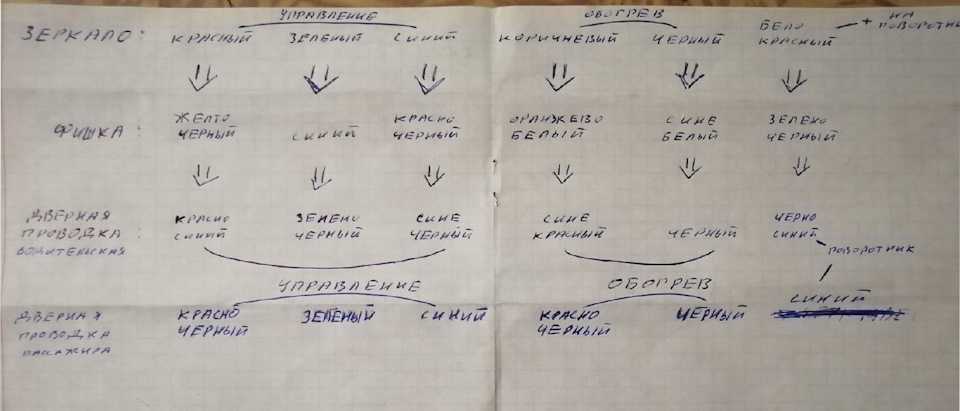 УПРАВЛЕНИЕ ОБОГРЕВ
ЗЕРКАЛО: КРАСНЫЙ ЗЕЛЕНЫЙ СИНИЙ КОРИЧНЕВЫЙ ЧЕРНЫЙ БЕЛО КРАСНЫЙ + НА ПОВОРОТНИК
ФИШКА: ЖЕЛТО ЧЕРНЫЙ СИНИЙ КРАСНО ЧЕРНЫЙ ОРАНЖЕВО БЕЛЫЙ СИНЕ БЕЛЫЙ ЗЕЛЕНО ЧЕРНЫЙ
ДВЕРНАЯ КРАСНО ЗЕЛЕНО СИНЕ СИНЕ ЧЕРНО
ПРОВОДКА: СИНИЙ ЧЕРНЫЙ ЧЕРНЫЙ КРАСНЫЙ ЧЕРНЫЙ СИНИЙ
ВОДИТЕЛЬСКАЯ ПОВОРОТНИК
УПРАВЛЕНИЕ ОБОГРЕВ
СИНИЙ
ДВЕРНАЯ КРАСНО ЗЕЛЁНЫЙ СИНИЙ КРАСНО ЧЕРНЫЙ
ПРОВОДКА ЧЕРНЫЙ ЧЕРНЫЙ
ПАССАЖИРА